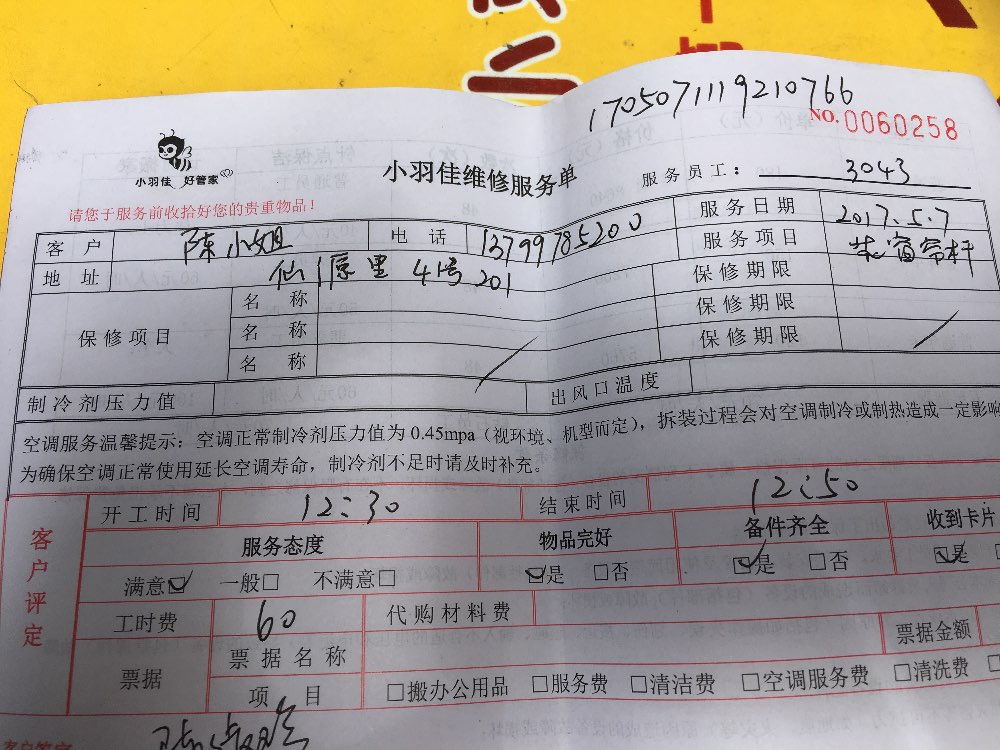 1705071119210766
NO. 0060258
小羽佳 好管家
小羽佳维修服务单
服务员工： 3043
请您于服务前收拾好您的贵重物品！
客户 陈小姐 电话 13799785200 服务日期 2017.5.7
地址 仙厚里 41号201 服务项目 装窗帘杆
保修项目 名称 保修期限
名称 保修期限
名称 保修期限
制冷剂压力值 出风口温度
空调服务温馨提示：空调正常制冷剂压力值为0.45mpa（视环境、机型而定），拆装过程会对空调制冷或制热造成一定影响
为确保空调正常使用延长空调寿命，制冷剂不足时请及时补充。
客户评定
开工时间 12:30 结束时间 12:50
服务态度 物品完好 备件齐全 收到卡片
满意☑ 一般□ 不满意□ ☑是 □否 ☑是 □否 ☑是
工时费 60 代购材料费
票据 票据名称 票据金额
项目 □搬办公用品 □服务费 □清洁费 □空调服务费 □清洗费